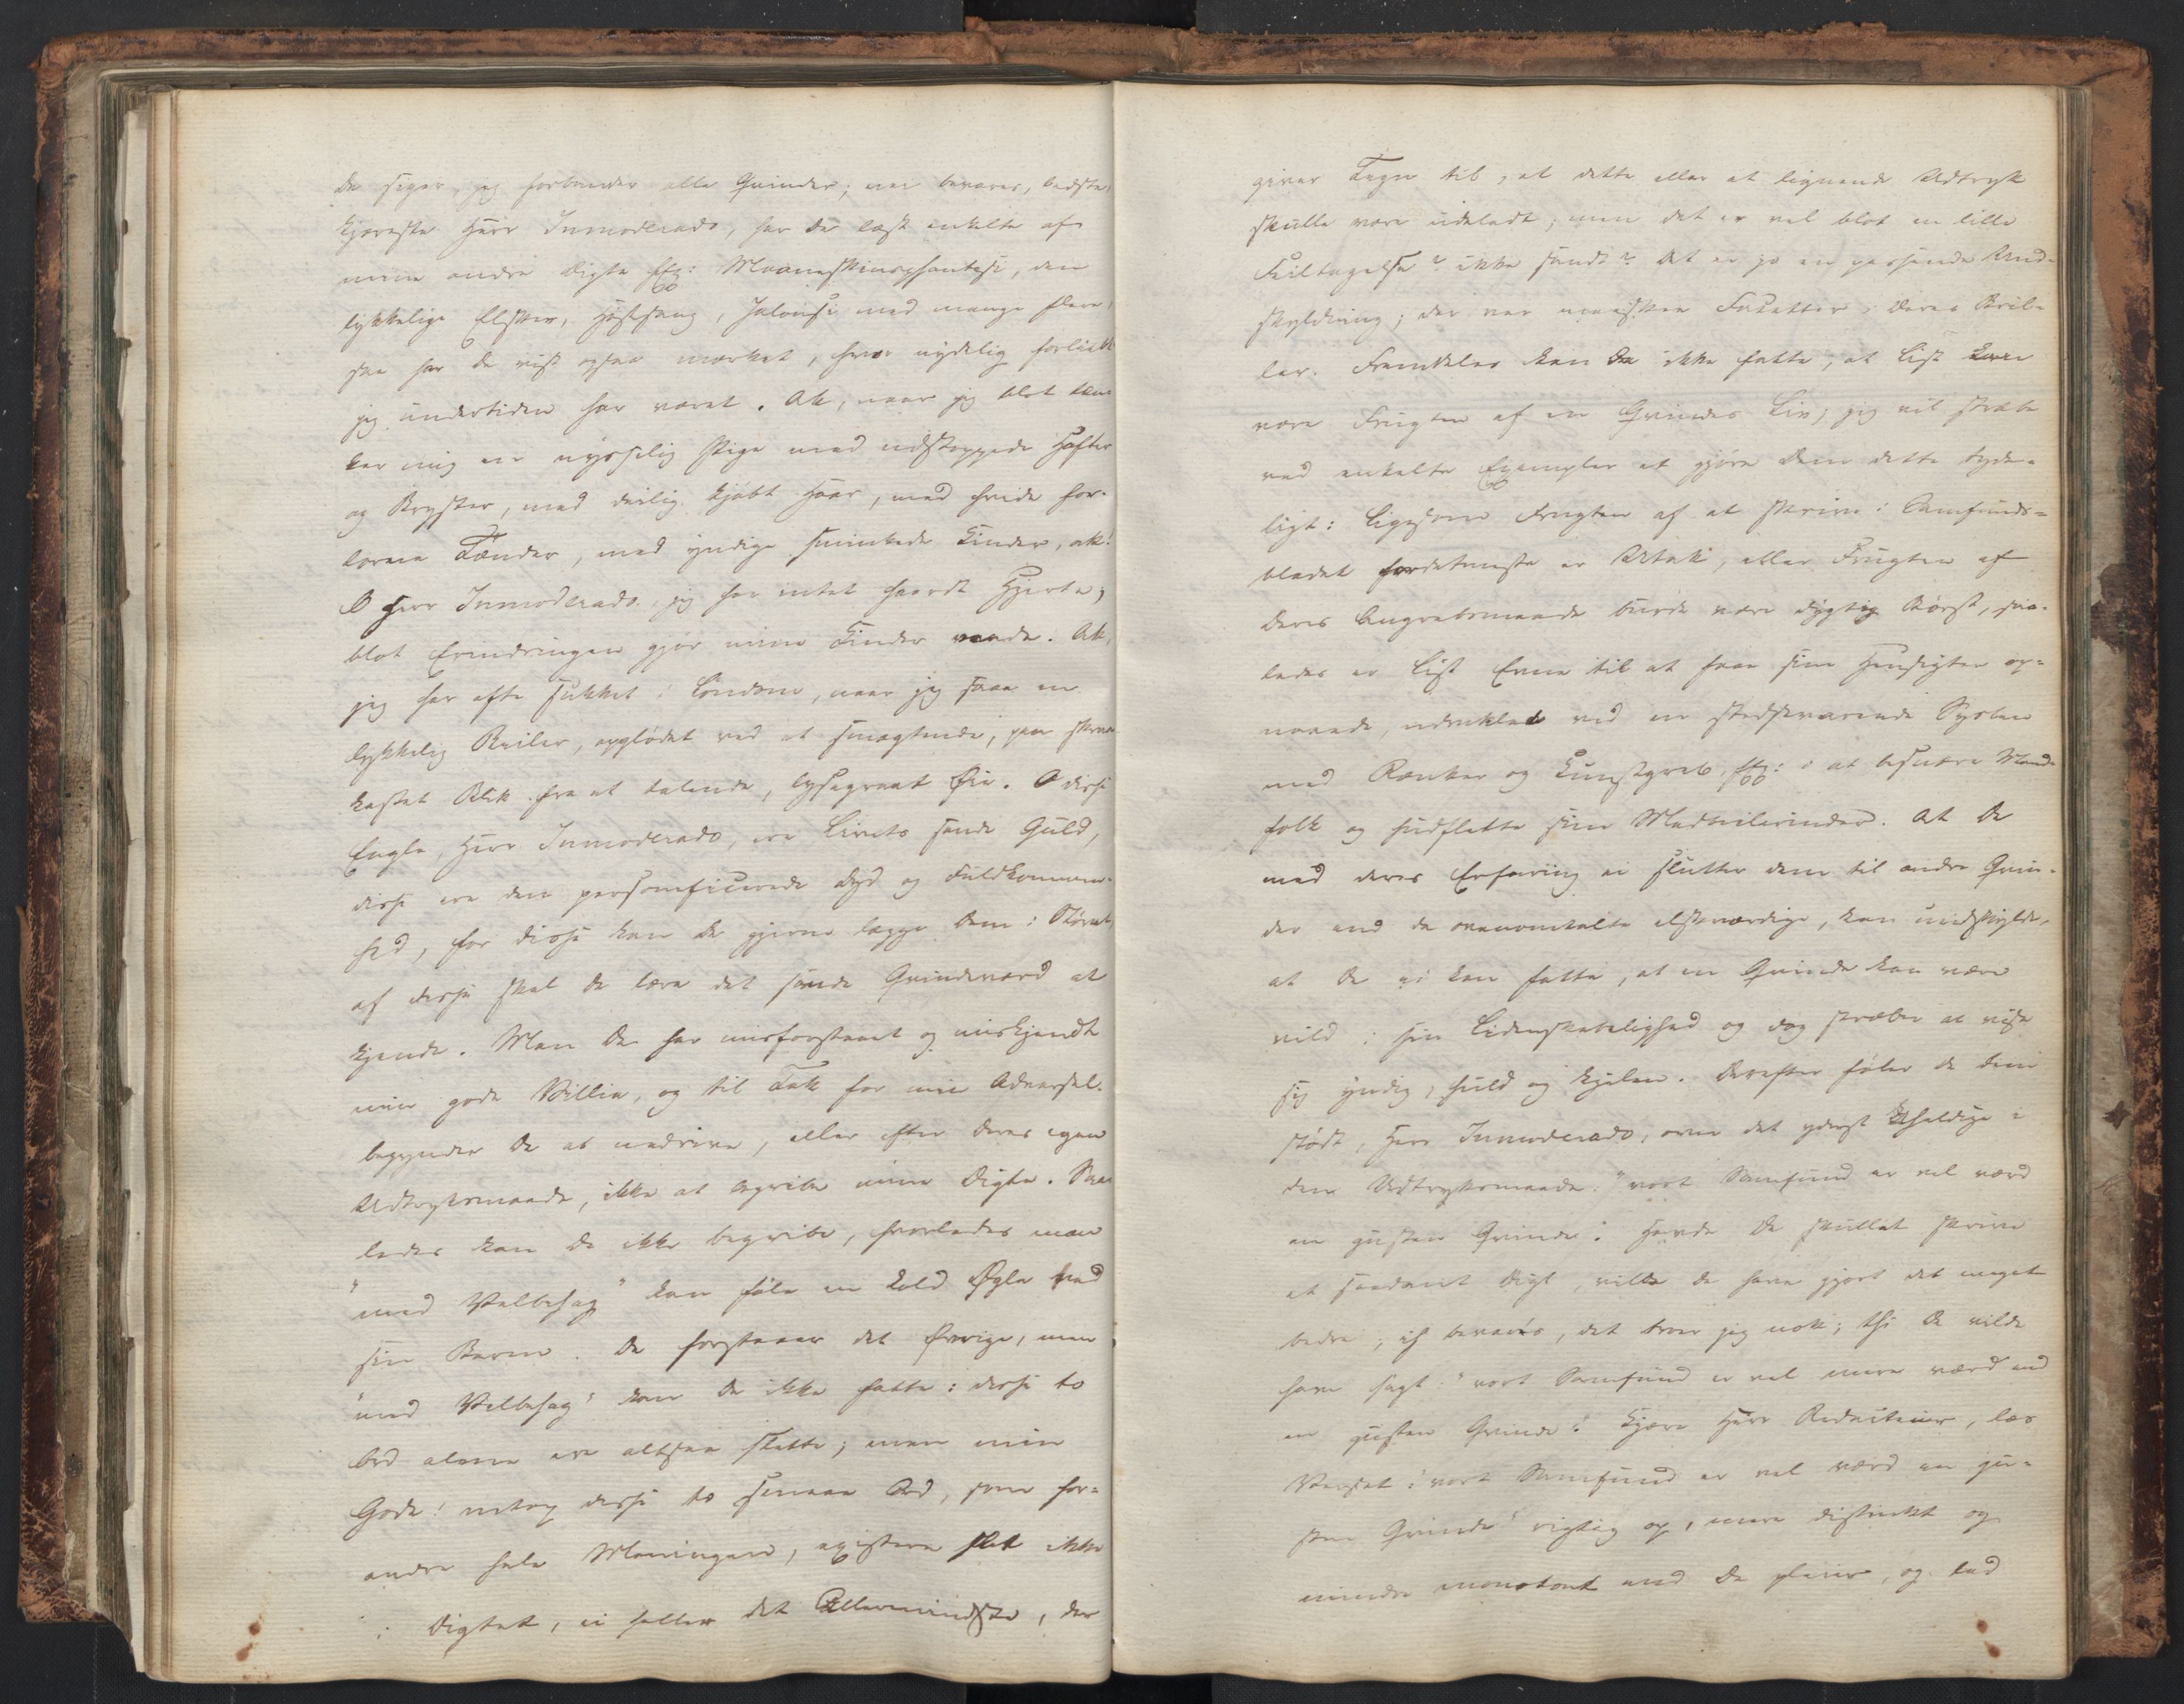 De siger, jeg forbander alle Qvinder; nei bevares, bedste,
kjæreste Herr Inmoderado, har De læst enkelte af
mine andre Digte f.Ex: Maaneskinsphantasi, den
lykkelige Elsker, Høstsang, Jalousi med mange flere,
saa har De vist ogsaa mærket, hvor nydelig forliebt
jeg undertiden har været. Ak, naar jeg blot tæn-
ker mig en nysselig Pige med udstoppede Hofter
og Bryster, med deilig kjøbt Haar, med hvide for-
lorne Tænder, med yndige sminkede Kinder, ak!
O Herr Inmoderado jeg har intet haardt Hjerte;
blot Erindringen gjør mine Kinder vaade. Ak,
jeg har ofte sukket i Løndom, naar jeg saae en
lykkelig Beiler, opglødet ved et smægtende, paa skraa
kastet Blik fra et talende, lysegraat Øie. O disse
Engle, Herr Inmoderado, ere Livets sande Guld,
disse ere den personificerede Dyd og Fuldkommen-
hed, for disse kan De gjerne lægge Dem i Støvet,
af disse skal De lære det sande Qvindeværd at
kjende. Men De har misforstaaet og miskjendt
min gode Villie, og til Tak for min Advarsel
begynder De at nedrive, eller efter Deres egen
Udtryksmaade, ikke at begribe mine Digte. Saa
ledes kan De ikke begribe, hvorledes man
"med Velbehag" kan føle en kold Øgle ved
sin Barm. De forstaaer det Øvrige, men
"med Velbehag" kan De ikke fatte: disse to
Ord alene ere altsaa slette; men min
Gode! netop disse to smaae Ord, som for-
andre hele Meningen, existere slet ikke
i Digtet, ei heller det Allermindste, der
giver Tegn til, at dette eller et lignende Udtryk
skulle være udeladt; men det er vel blot en lille
Feiltagelse? ikke sandt? det er jo en passende Und-
skyldning; der var maaskee Facetter i Deres Bril-
ler. Fremdeles kan De ikke fatte, at List kan
være Frugten af en Qvindes Liv; jeg vil stræbe
ved enkelte Exempler at gjøre Dem dette tyde-
ligt: Ligesom Frugten af at skrive i Samfunds-
bladet fordetmeste er Utak, eller Frugten af
Deres Angrebsmaade burde være dygtig Børst, saa-
ledes er List Evne til at faae sine Hensigter op-
naaede, udviklet ved en stedsevarende Syslen
med Rænker og Kunstgreb, f.Ex: i at besnære Mand-
folk og hudflette sine Medbeilerinder. At De
med Deres Erfaring ei slutter Dem til andre Qvin-
der end de ovenomtalte elskværdige, kan undskylde,
at De ei kan fatte, at en Qvinde kan være
vild i sin Lidenskabelighed og dog stræbe at vise
sig yndig, huld og kjælen. Derefter føler De Dem
stødt, Herr Inmoderado, over det yderst Uheldige i
den Udtryksmaade: "vort Samfund er vel værd
en gusten Qvinde". Havde De skullet skrive
et saadant Digt, vilde De have gjort det meget
bedre; ih bevares, det troer jeg nok; thi De vilde
have sagt: "vort Samfund er vel mere værd end
en gusten Qvinde". Kjære Herr Redacteur, læs
Verset: "vort Samfund er vel værd en gu-
sten Qvinde" rigtig op, mere distinkt og
mindre monotont end De pleier, og lad